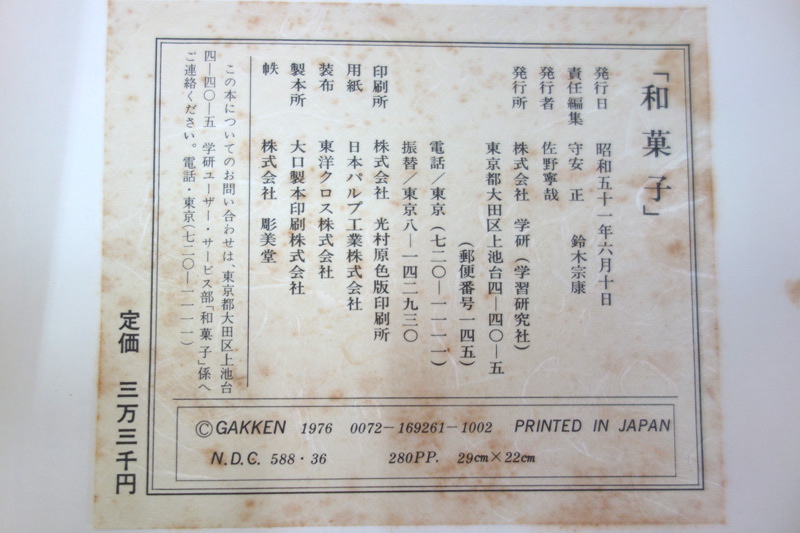 「和菓子」
発行日　昭和五十一年六月十日
責任編集　守安　正　鈴木宗康
発行者　佐野寧哉
発行所　株式会社　学研（学習研究社）
東京都大田区上池台四―四〇―五
（郵便番号一四五）
電話／東京（七二〇―一一一一）
振替／東京八―一四二九三〇
印刷所　株式会社　光村原色版印刷所
用紙　日本パルプ工業株式会社
装布　東洋クロス株式会社
製本所　大口製本印刷株式会社
帙　株式会社　彫美堂
この本についてのお問い合わせは、東京都大田区上池台
四―四〇―五　学研ユーザー・サービス部「和菓子」係へ
ご連絡ください。電話・東京（七二〇―一一一一）
©GAKKEN 1976 0072-169261-1002 PRINTED IN JAPAN
N.D.C. 588・36 280PP. 29cm×22cm
定価　三万三千円